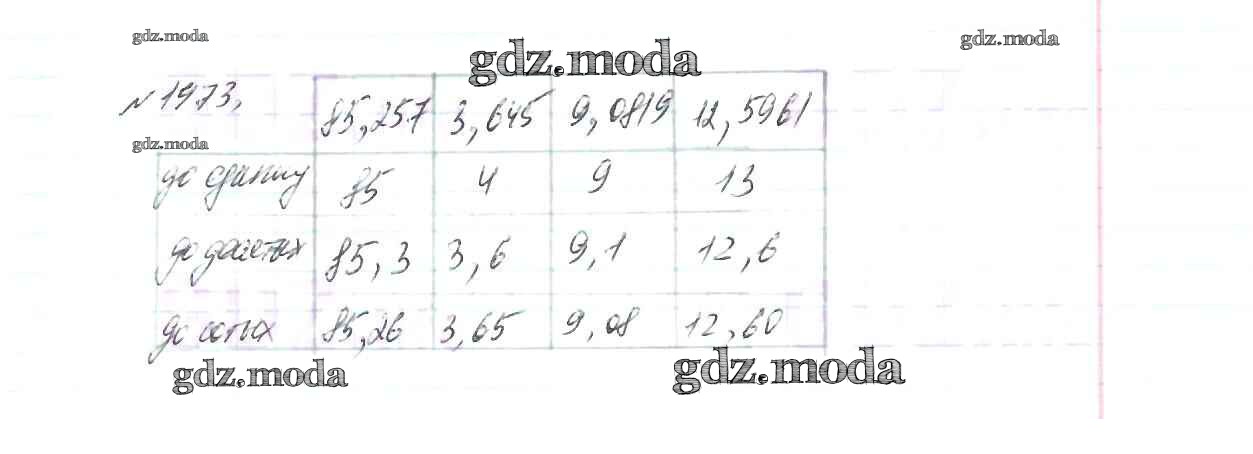 gdz.moda
gdz.moda
gdz.moda
№ 1973,
85,257 3,645 9,0819 12,5961
gdz.moda
до единиц 85 4 9 13
до десятых 85,3 3,6 9,1 12,6
до сотых 85,26 3,65 9,08 12,60
gdz.moda
gdz.moda